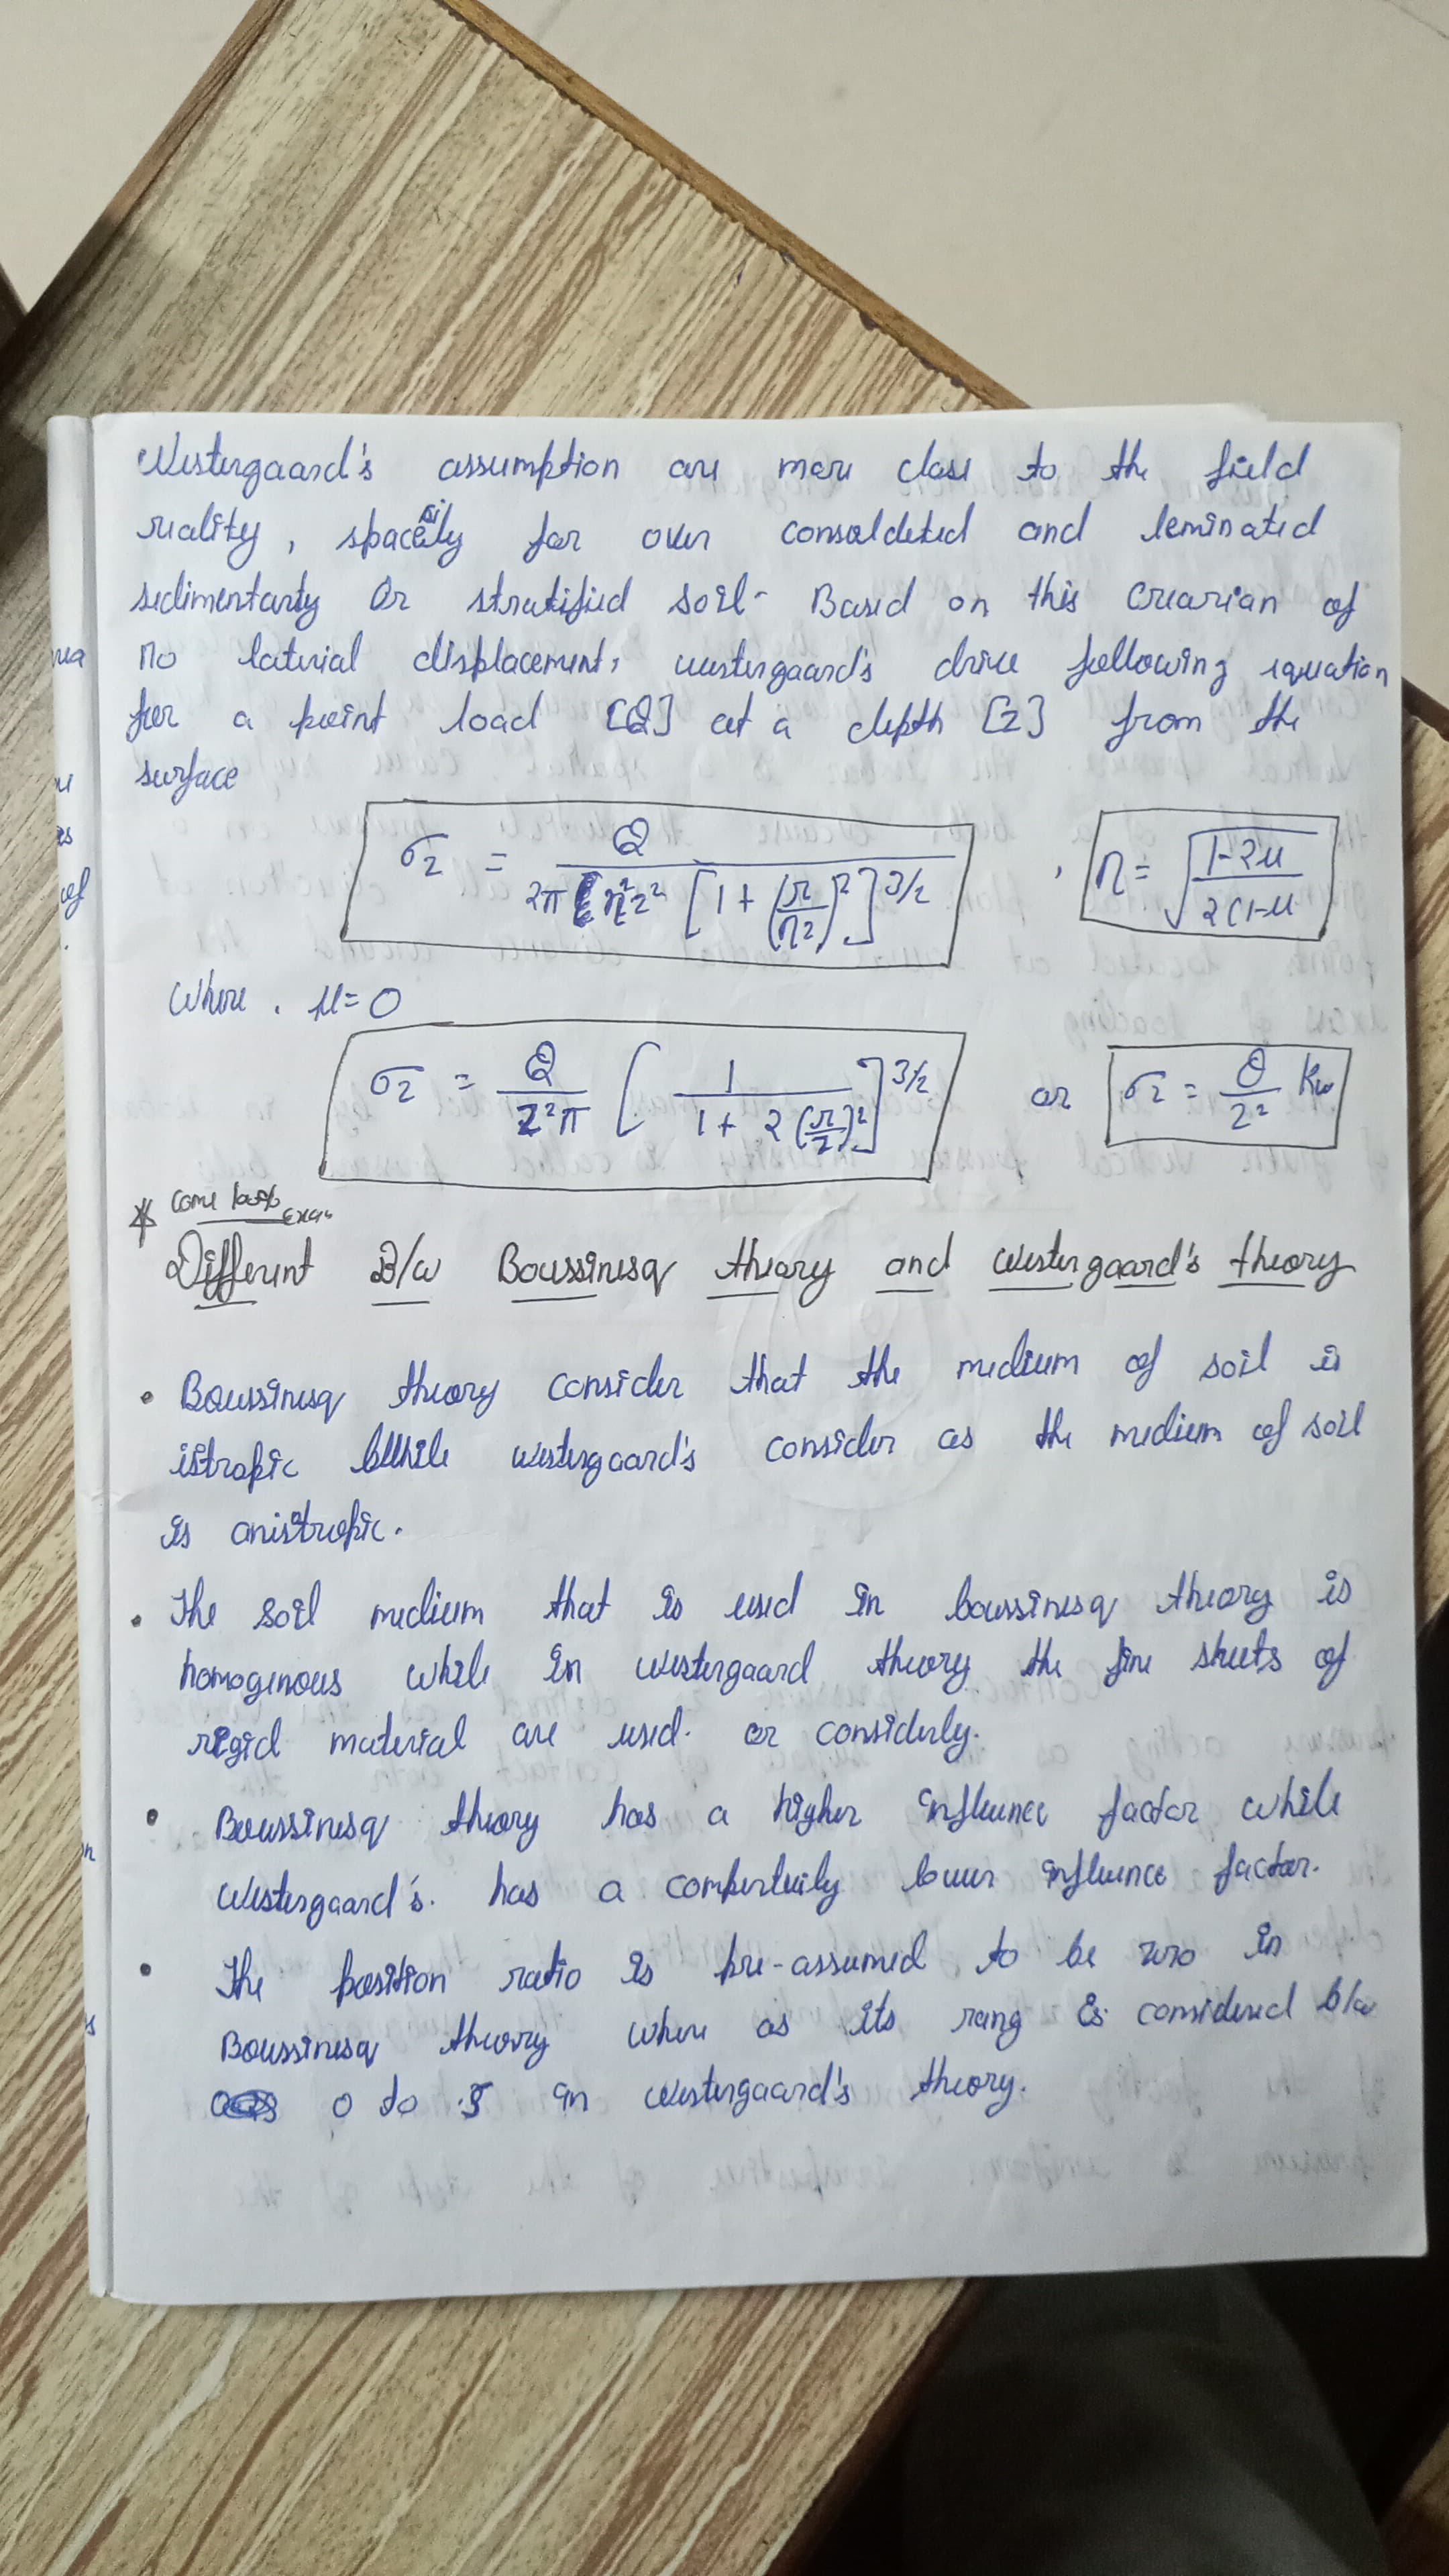 Westergaard's assumption are more close to the field
reality, spacaily for over consoldeted and leminated
sedimentarty or stratified soil. Based on this of
no laterial displacement, westergaard's drive following equation
for a point load [Q] at a depth [z] from the
surface
σz = Q / 2π η²z² [1 + (r/ηz)²]^3/2 , η = √(1-2μ / 2(1-μ
Where, μ = 0
σz = Q / z²π [1 / 1 + 2(r/z)²]^3/2 or σz = Q / z² Kw
* come
Different B/w Boussinesq theory and Westergaard's theory
• Boussinesq theory consider that the medium of soil is
istropic while westergaard's consider as the medium of soil
is anistropic.
• The soil medium that is used in boussinesq theory is
homogenous while in westergaard theory the fine sheets of
rigid material are used. or considerly.
• Boussinesq theory has a higher influence factor while
Westergaard's. has a lower influence factor.
• The position ratio is pre-assumed to be zero in
Boussinesq theory where as its rang is considered b/w
0 to .5 in westergaard's theory.